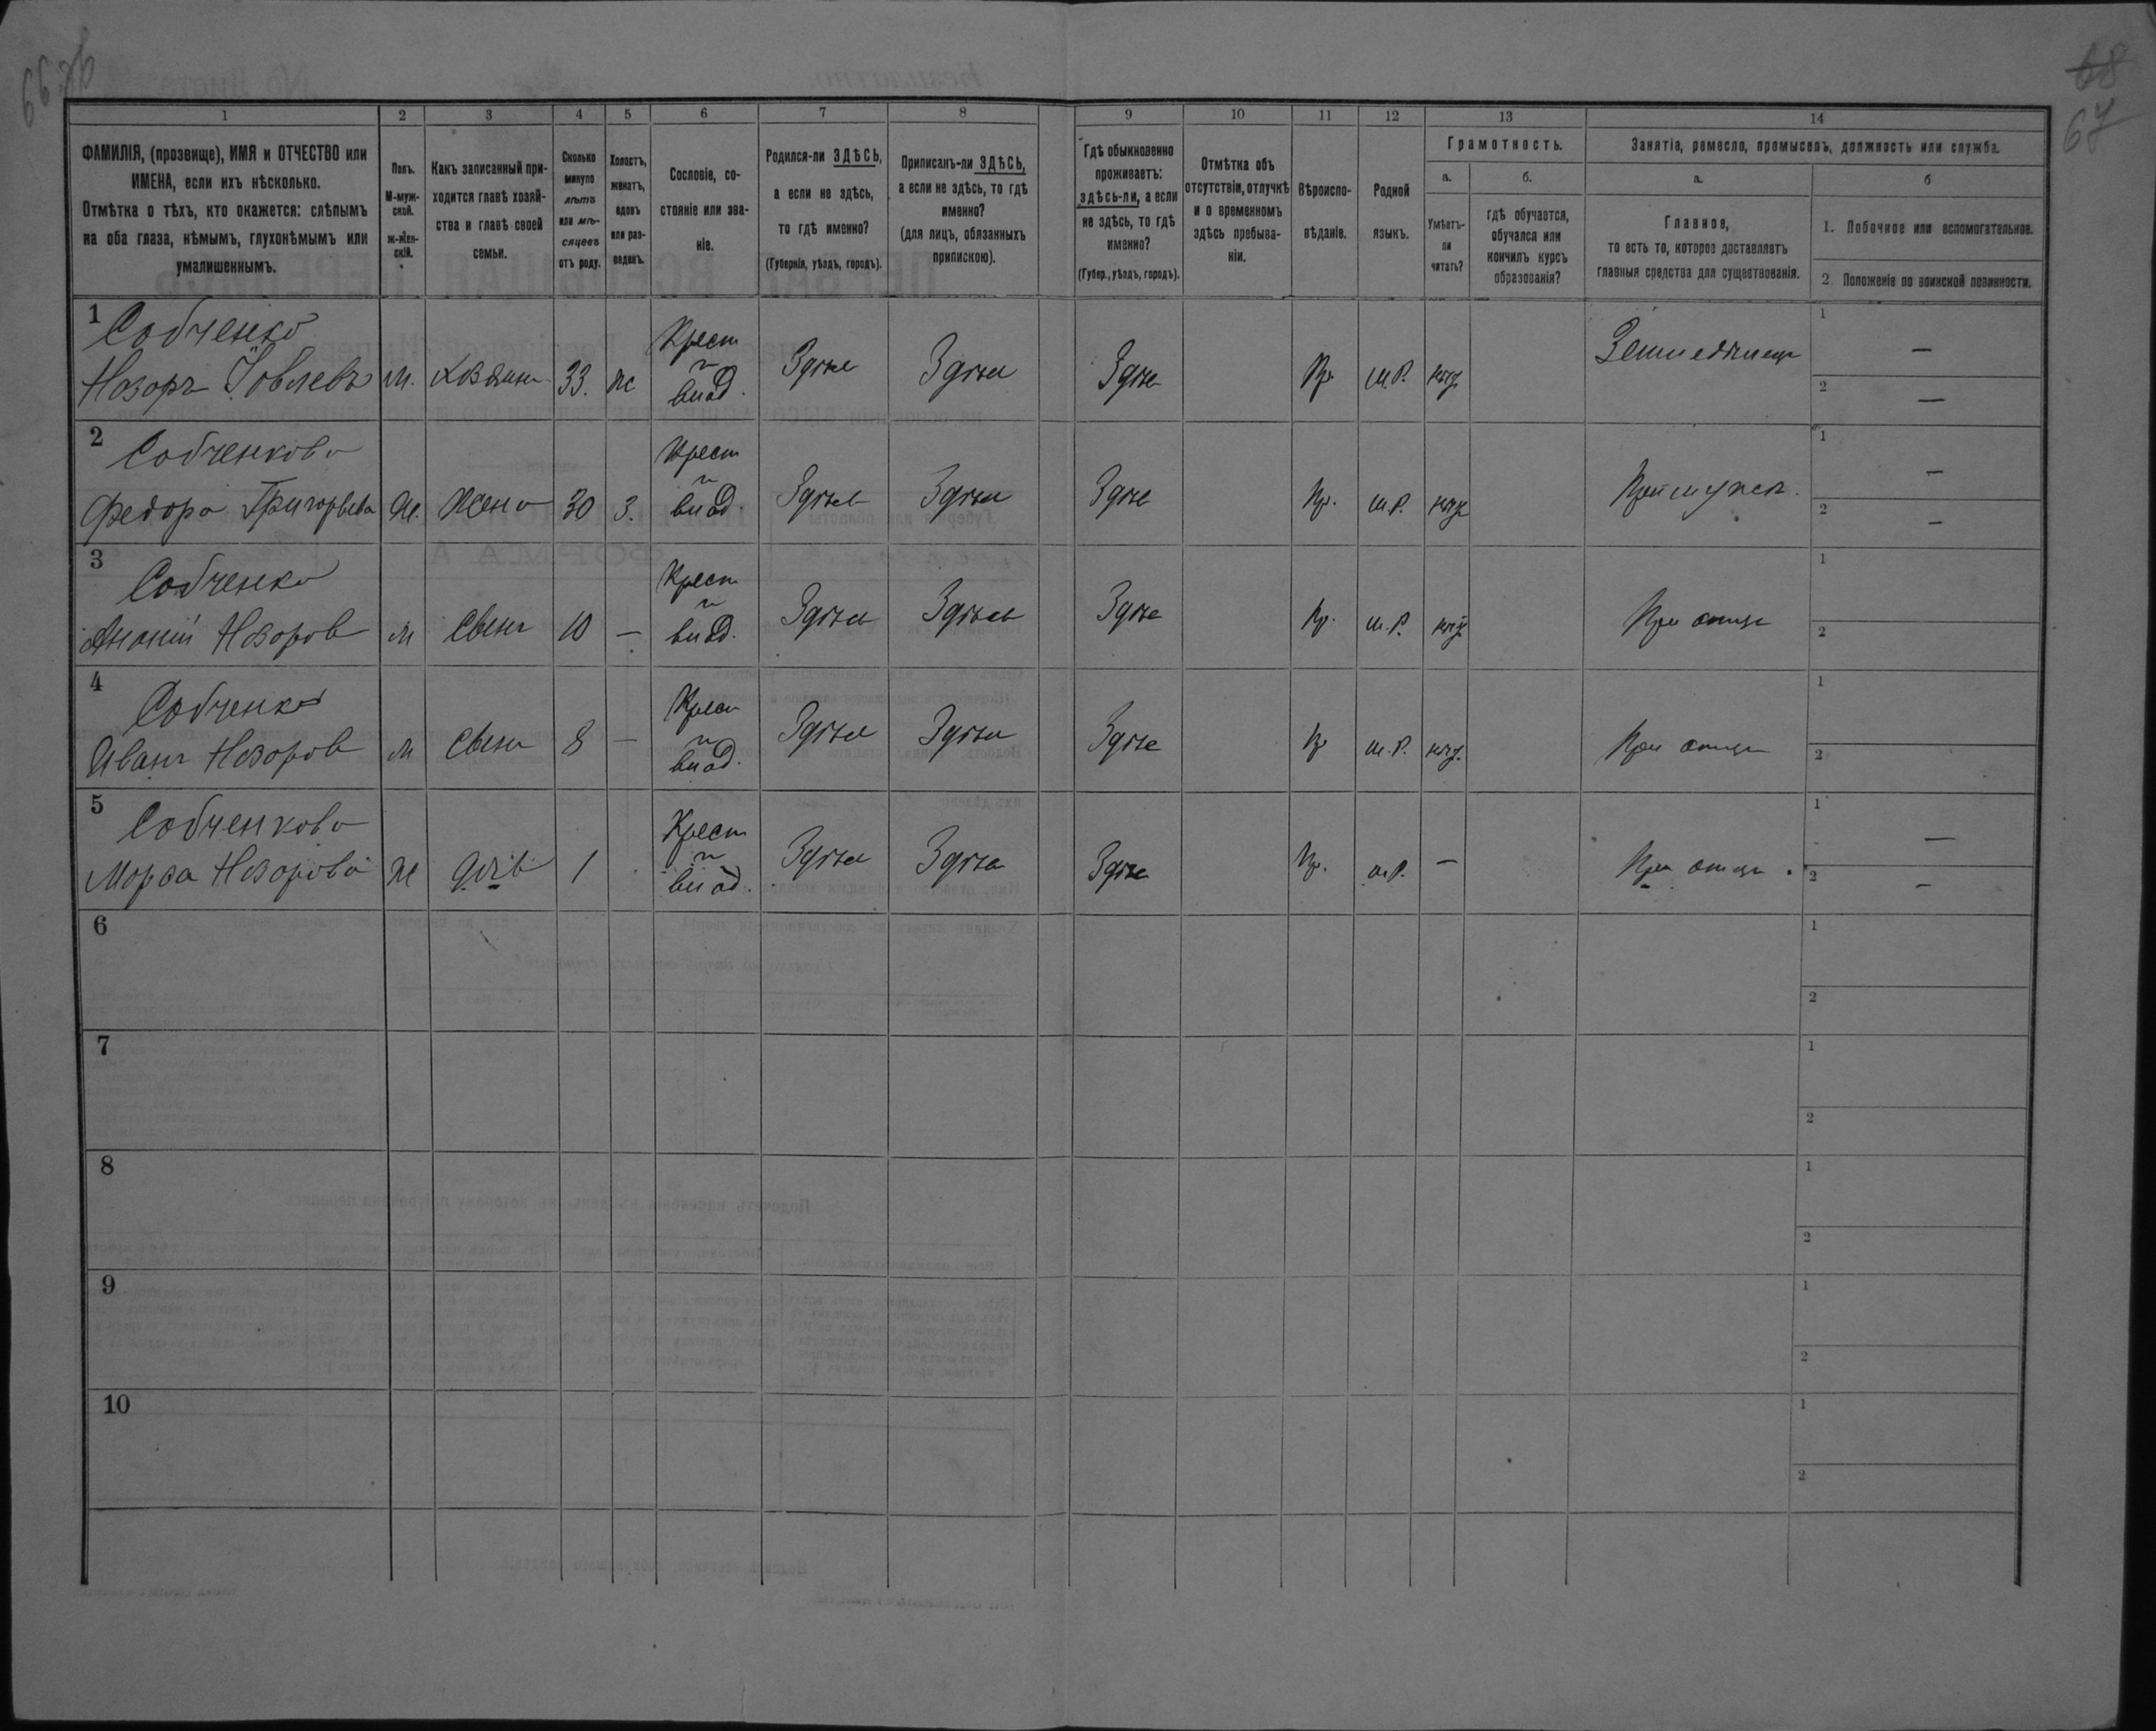 66об
68
67
1 2 3 4 5 6 7 8 9 10 11 12 13 14
ФАМИЛІЯ, (прозвище), ИМЯ и ОТЧЕСТВО или
ИМЕНА, если ихъ нѣсколько.
Отмѣтка о тѣхъ, кто окажется: слѣпымъ
на оба глаза, нѣмымъ, глухонѣмымъ или
умалишеннымъ.
Полъ.
М-муж-
ской.
ж-жен-
скій.
Какъ записанный при-
ходится главѣ хозяй-
ства и главѣ своей
семьи.
Сколько
минуло
лѣтъ
или мѣ-
сяцевъ
отъ роду.
Холостъ,
женатъ,
вдовъ
или раз-
веденъ.
Сословіе, со-
стояніе или зва-
ніе.
Родился-ли ЗДѢСЬ,
а если не здѣсь,
то гдѣ именно?
(Губернія, уѣздъ, городъ).
Приписанъ-ли ЗДѢСЬ,
а если не здѣсь, то гдѣ
именно?
(для лицъ, обязанныхъ
припискою).
Гдѣ обыкновенно
проживаетъ:
здѣсь-ли, а если
не здѣсь, то гдѣ
именно?
(Губер., уѣздъ, городъ).
Отмѣтка объ
отсутствіи, отлучкѣ
и о временномъ
здѣсь пребыва-
ніи.
Вѣроиспо-
вѣданіе.
Родной
языкъ.
Грамотность.
а.
Умѣетъ-
ли
читать?
б.
гдѣ обучается,
обучался или
кончилъ курсъ
образованія?
Занятіе, ремесло, промыселъ, должность или служба.
а.
Главное,
то есть то, которое доставляетъ
главныя средства для существованія.
б
1. Побочное или вспомогательное.
2 Положеніе по воинской повинности.
1 Собченко Крест
Назоръ Іовлевъ М. Хозяинъ 33. ж и влад. Здѣсь Здѣсь Здѣсь Пр. м.Р. нѣт Земледѣлецъ 1 — 2 —
2 Собченкова Крест
Федора Григорьева Ж. Жена 30 з. и влад. Здѣсь Здѣсь Здѣсь Пр. м.Р. нѣт При мужѣ. 1 — 2 —
3 Собченко Крест
Ананій Назоров М Сынъ 10 — и влад. Здѣсь Здѣсь Здѣсь Пр. м.Р. нѣт При отцѣ 1 2
4 Собченко Крест
Иванъ Назоров М Сынъ 8 — и влад. Здѣсь Здѣсь Здѣсь Пр м.Р. нѣт. При отцѣ 1 2
5 Собченкова Крест
Марѳа Назорова Ж Дочь 1 и влад. Здѣсь Здѣсь Здѣсь Пр. м.Р. — При отцѣ 1 — 2 —
6 1
2
7 1
2
8 1
2
9 1
2
10 1
2